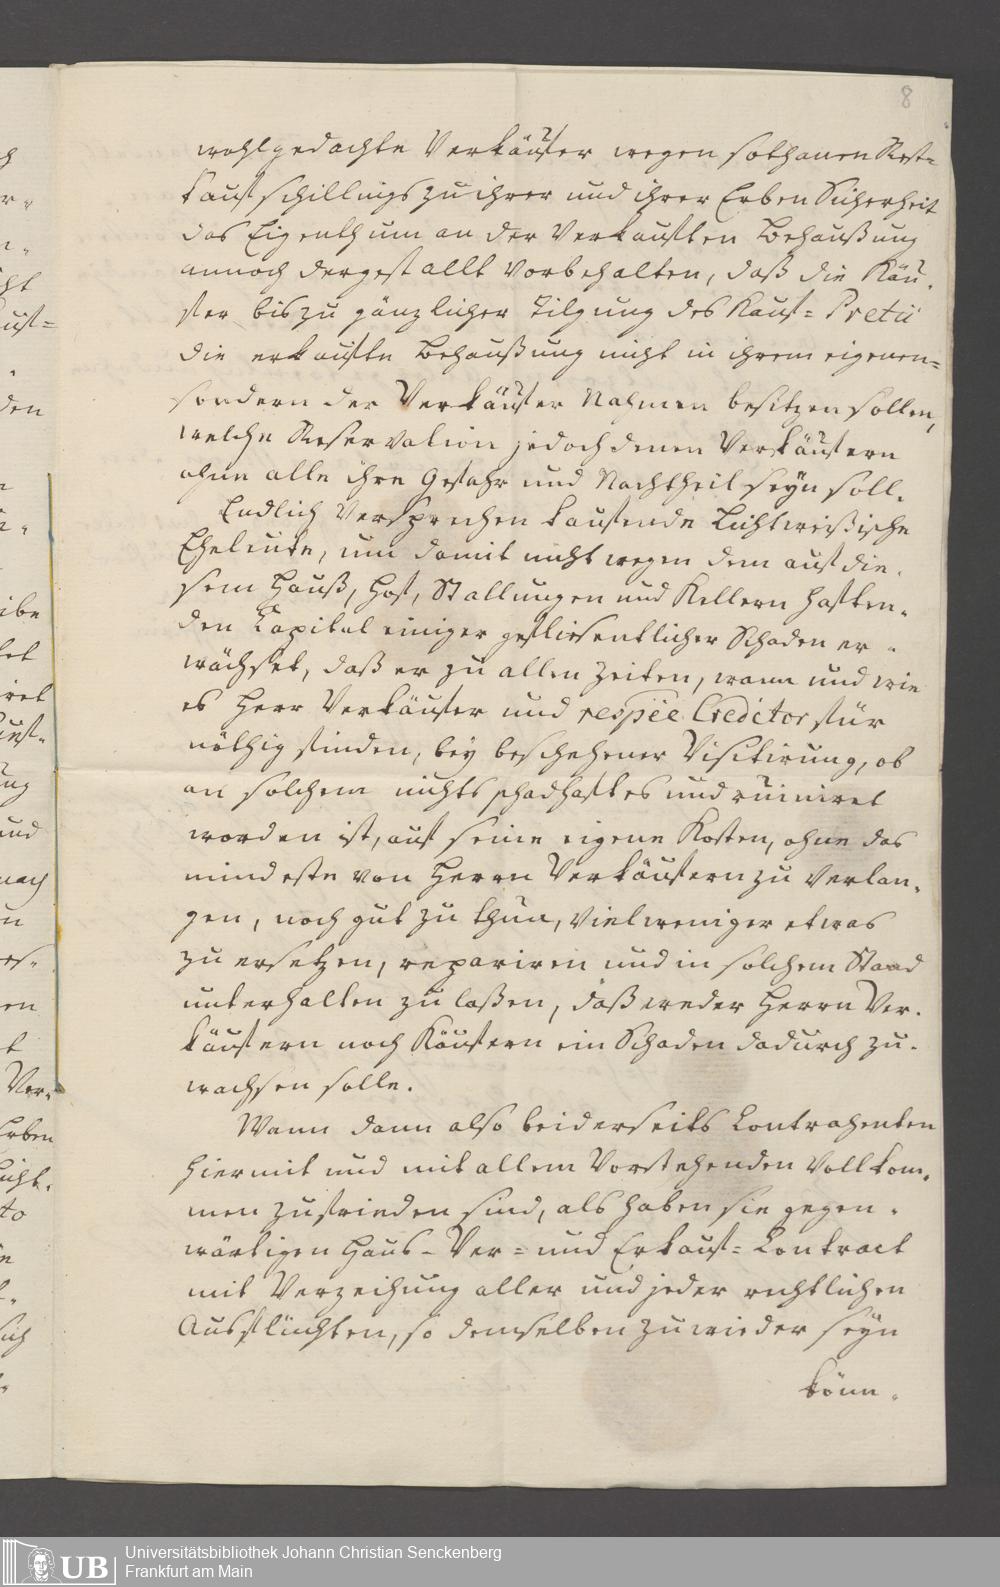 8
wohlgedachte Verkäuffer wegen sothanen Rest=
kaufschillings zu ihrer und ihrer Erben Sicherheit
das Eigenthum an der verkauften Behaußung
annoch dergestallt vorbehalten, daß die Käu-
fer bis zu gänzlicher Tilgung des Kauf= Pretii
die erkaufte Behaußung nicht in ihrem eigenen=
sondern der Verkäuffer Nahmen besitzen sollen,
welche Reservation jedoch denen Verkäuffern
ohne alle ihre Gefahr und Nachtheil seyn soll.
Endlich versprechen kaufende Lichtweißische
Eheleute, um damit nicht wegen dem auf die-
sem Hauß, Hof, Stallungen und Kellern haften-
den Capital einiger geflissentlicher Schaden er-
wächset, daß er zu allen Zeiten, wann und wie
es Herr Verkäuffer und respée Creditor für
nöthig finden, bey beschehener Visitirung, ob
an solchem nichts schadhaftes und ruiniret
worden ist, auf seine eigene Kosten, ohne das
mindeste von Herrn Verkäuffern zu verlan-
gen, noch gut zu thun, vielweniger etwas
zu ersetzen, repariren und in solchem Stand
unterhalten zu laßen, daß weder Herrn Ver-
käuffern noch Käuffern ein Schaden dadurch zu-
wachsen solle.
Wann dann also beiderseits Contrahenten
hiermit und mit allem Vorstehenden vollkom-
men zufrieden sind, als haben sie gegen-
wärtigen Haus- Ver= und Erkauf= Contract
mit Verzeihung aller und jeder rechtlichen
Ausflüchten, so demselben zuwieder seyn
könn-
UB
Universitätsbibliothek Johann Christian Senckenberg
Frankfurt am Main